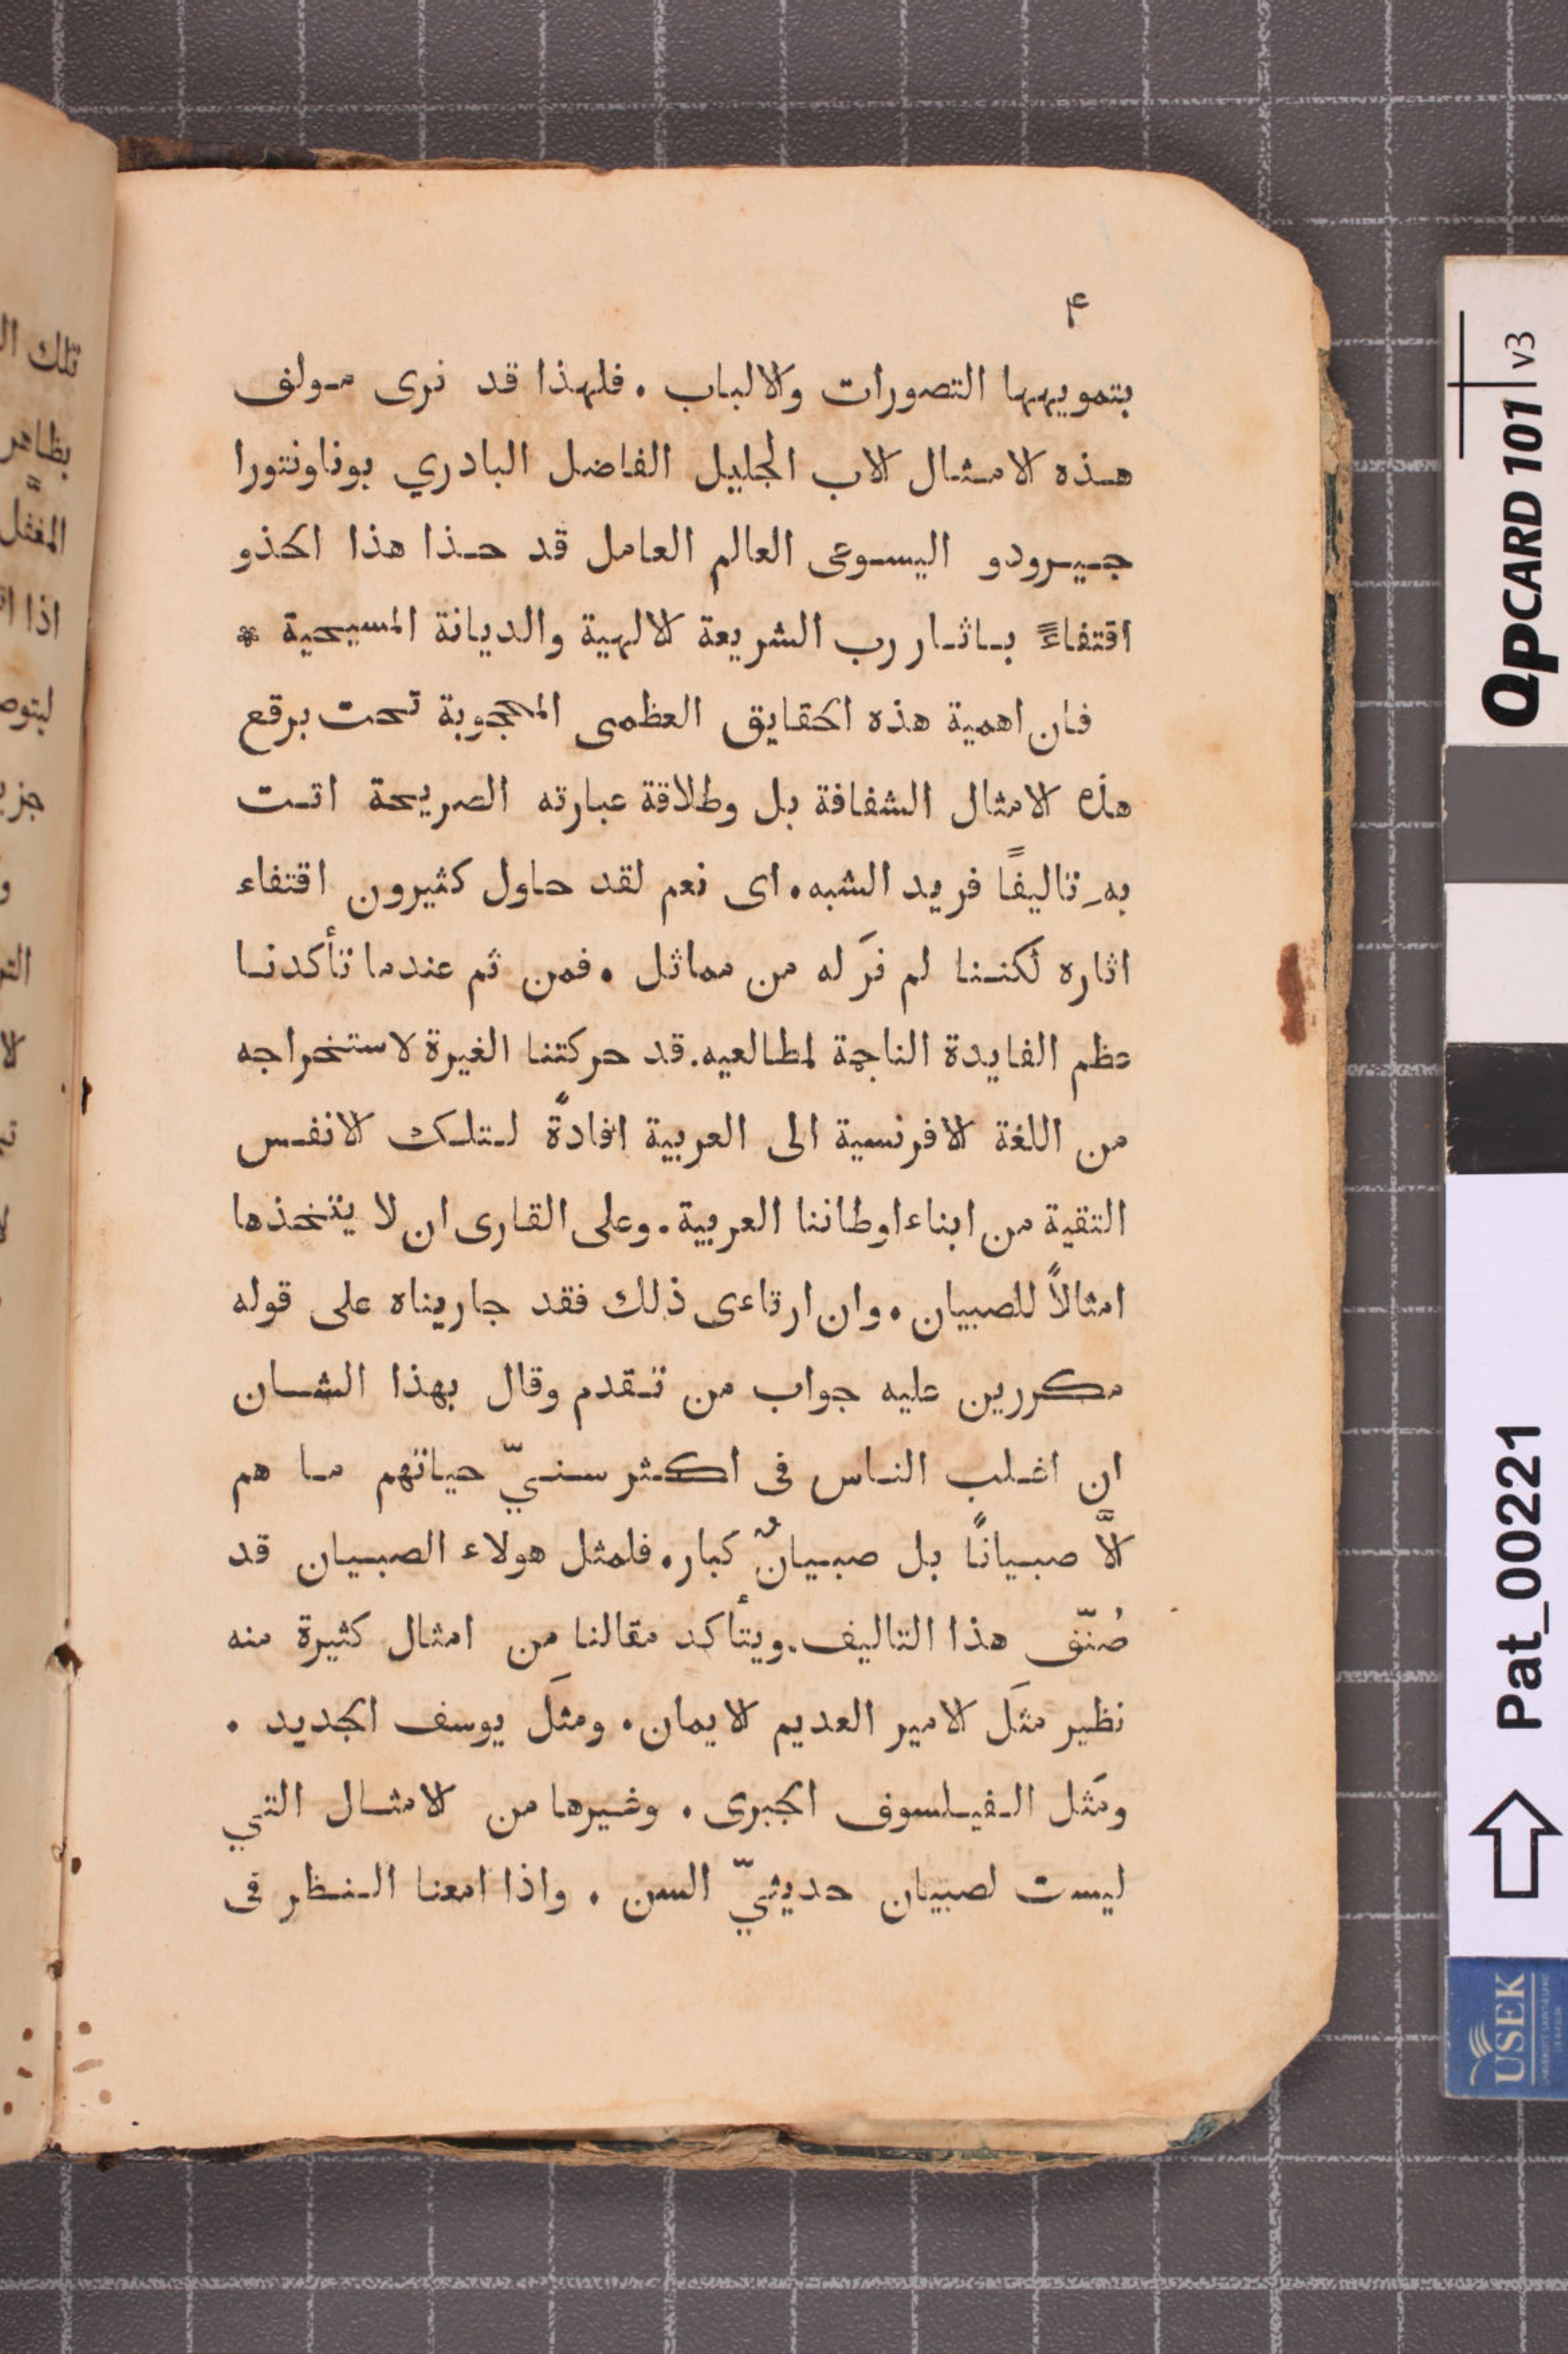 ۴
بتمويهها التصورات والالباب . فلهذا قد نرى مولف
هذه الامثال الاب الجليل الفاضل البادري بوناونتورا
جيرودو اليسوعى العالم العامل قد حذا هذا الحذو
اقتفاءً باثار رب الشريعة الالهية والديانة المسيحية *
فان اهمية هذه الحقايق العظمى المحجوبة تحت برقع
هذه الامثال الشفافة بل وطلاقة عبارته الصريحة اتت
بهِ تاليفًا فريد الشبه . اى نعم لقد حاول كثيرون اقتفاء
اثاره لكننا لم نرَ له من مماثل . فمن ثم عندما تأكدنا
عظم الفايدة الناجمة لمطالعيه . قد حركتنا الغيرة لاستخراجه
من اللغة الافرنسية الى العربية افادةً لتلك الانفس
التقية من ابناء اوطاننا العربية . وعلى القارى ان لا يتخذها
امثالاً للصبيان . وان ارتاءى ذلك فقد جاريناه على قوله
مكررين عليه جواب من تقدم وقال بهذا الشان
ان اغلب الناس فى اكثر سنيّ حياتهم ما هم
الاَّ صبيانًا بل صبيانٌ كبار . فلمثل هولاء الصبيان قد
صُنّف هذا التاليف . ويتأكد مقالنا من امثال كثيرة منه
نظير مثَل الامير العديم الايمان . ومثَل يوسف الجديد .
ومَثل الفيلسوف الجبرى . وغيرها من الامثال التي
ليست لصبيان حديثيّ السن . واذا امعنا النظر فى
تلك
بظاهر
المغفّل
اذا
QPCARD 101 v3
Pat_00221
USEK